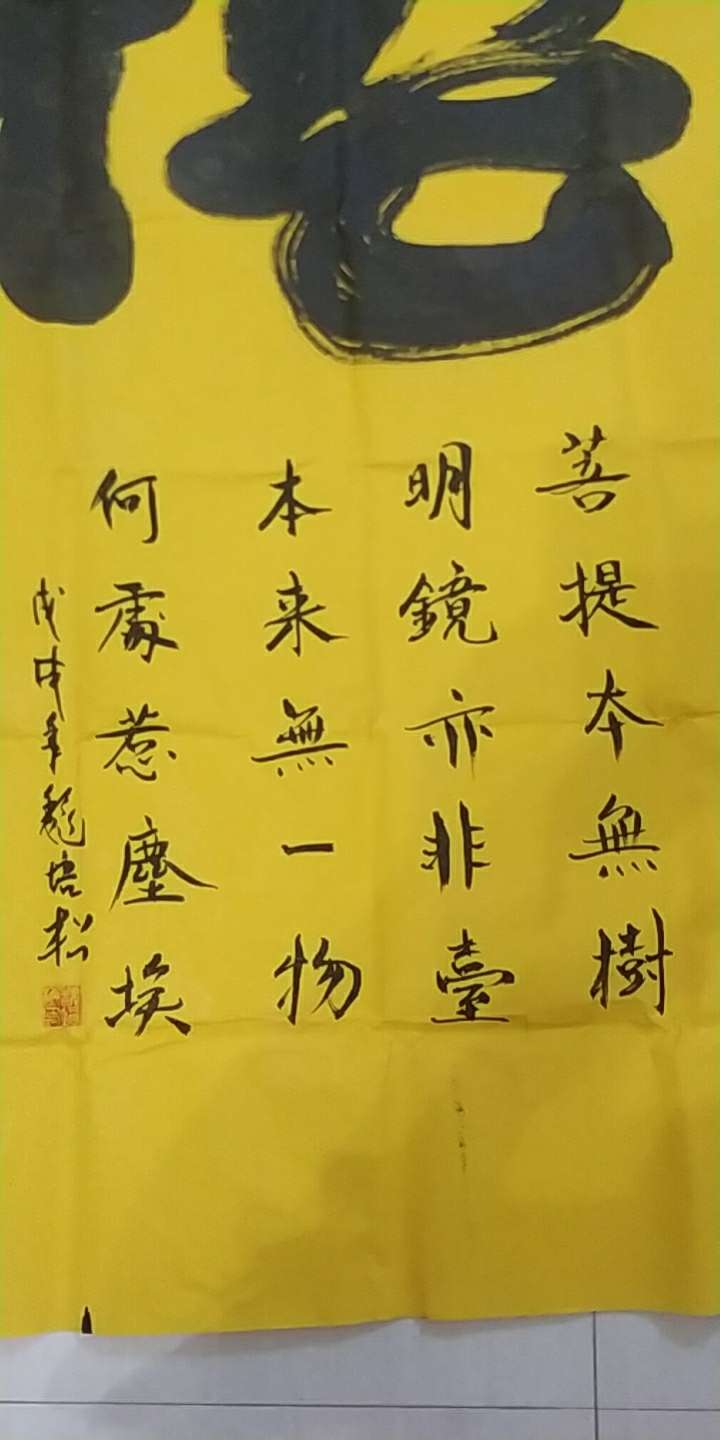 菩提本無樹
明鏡亦非臺
本来無一物
何處惹塵埃
戊戌年 培松